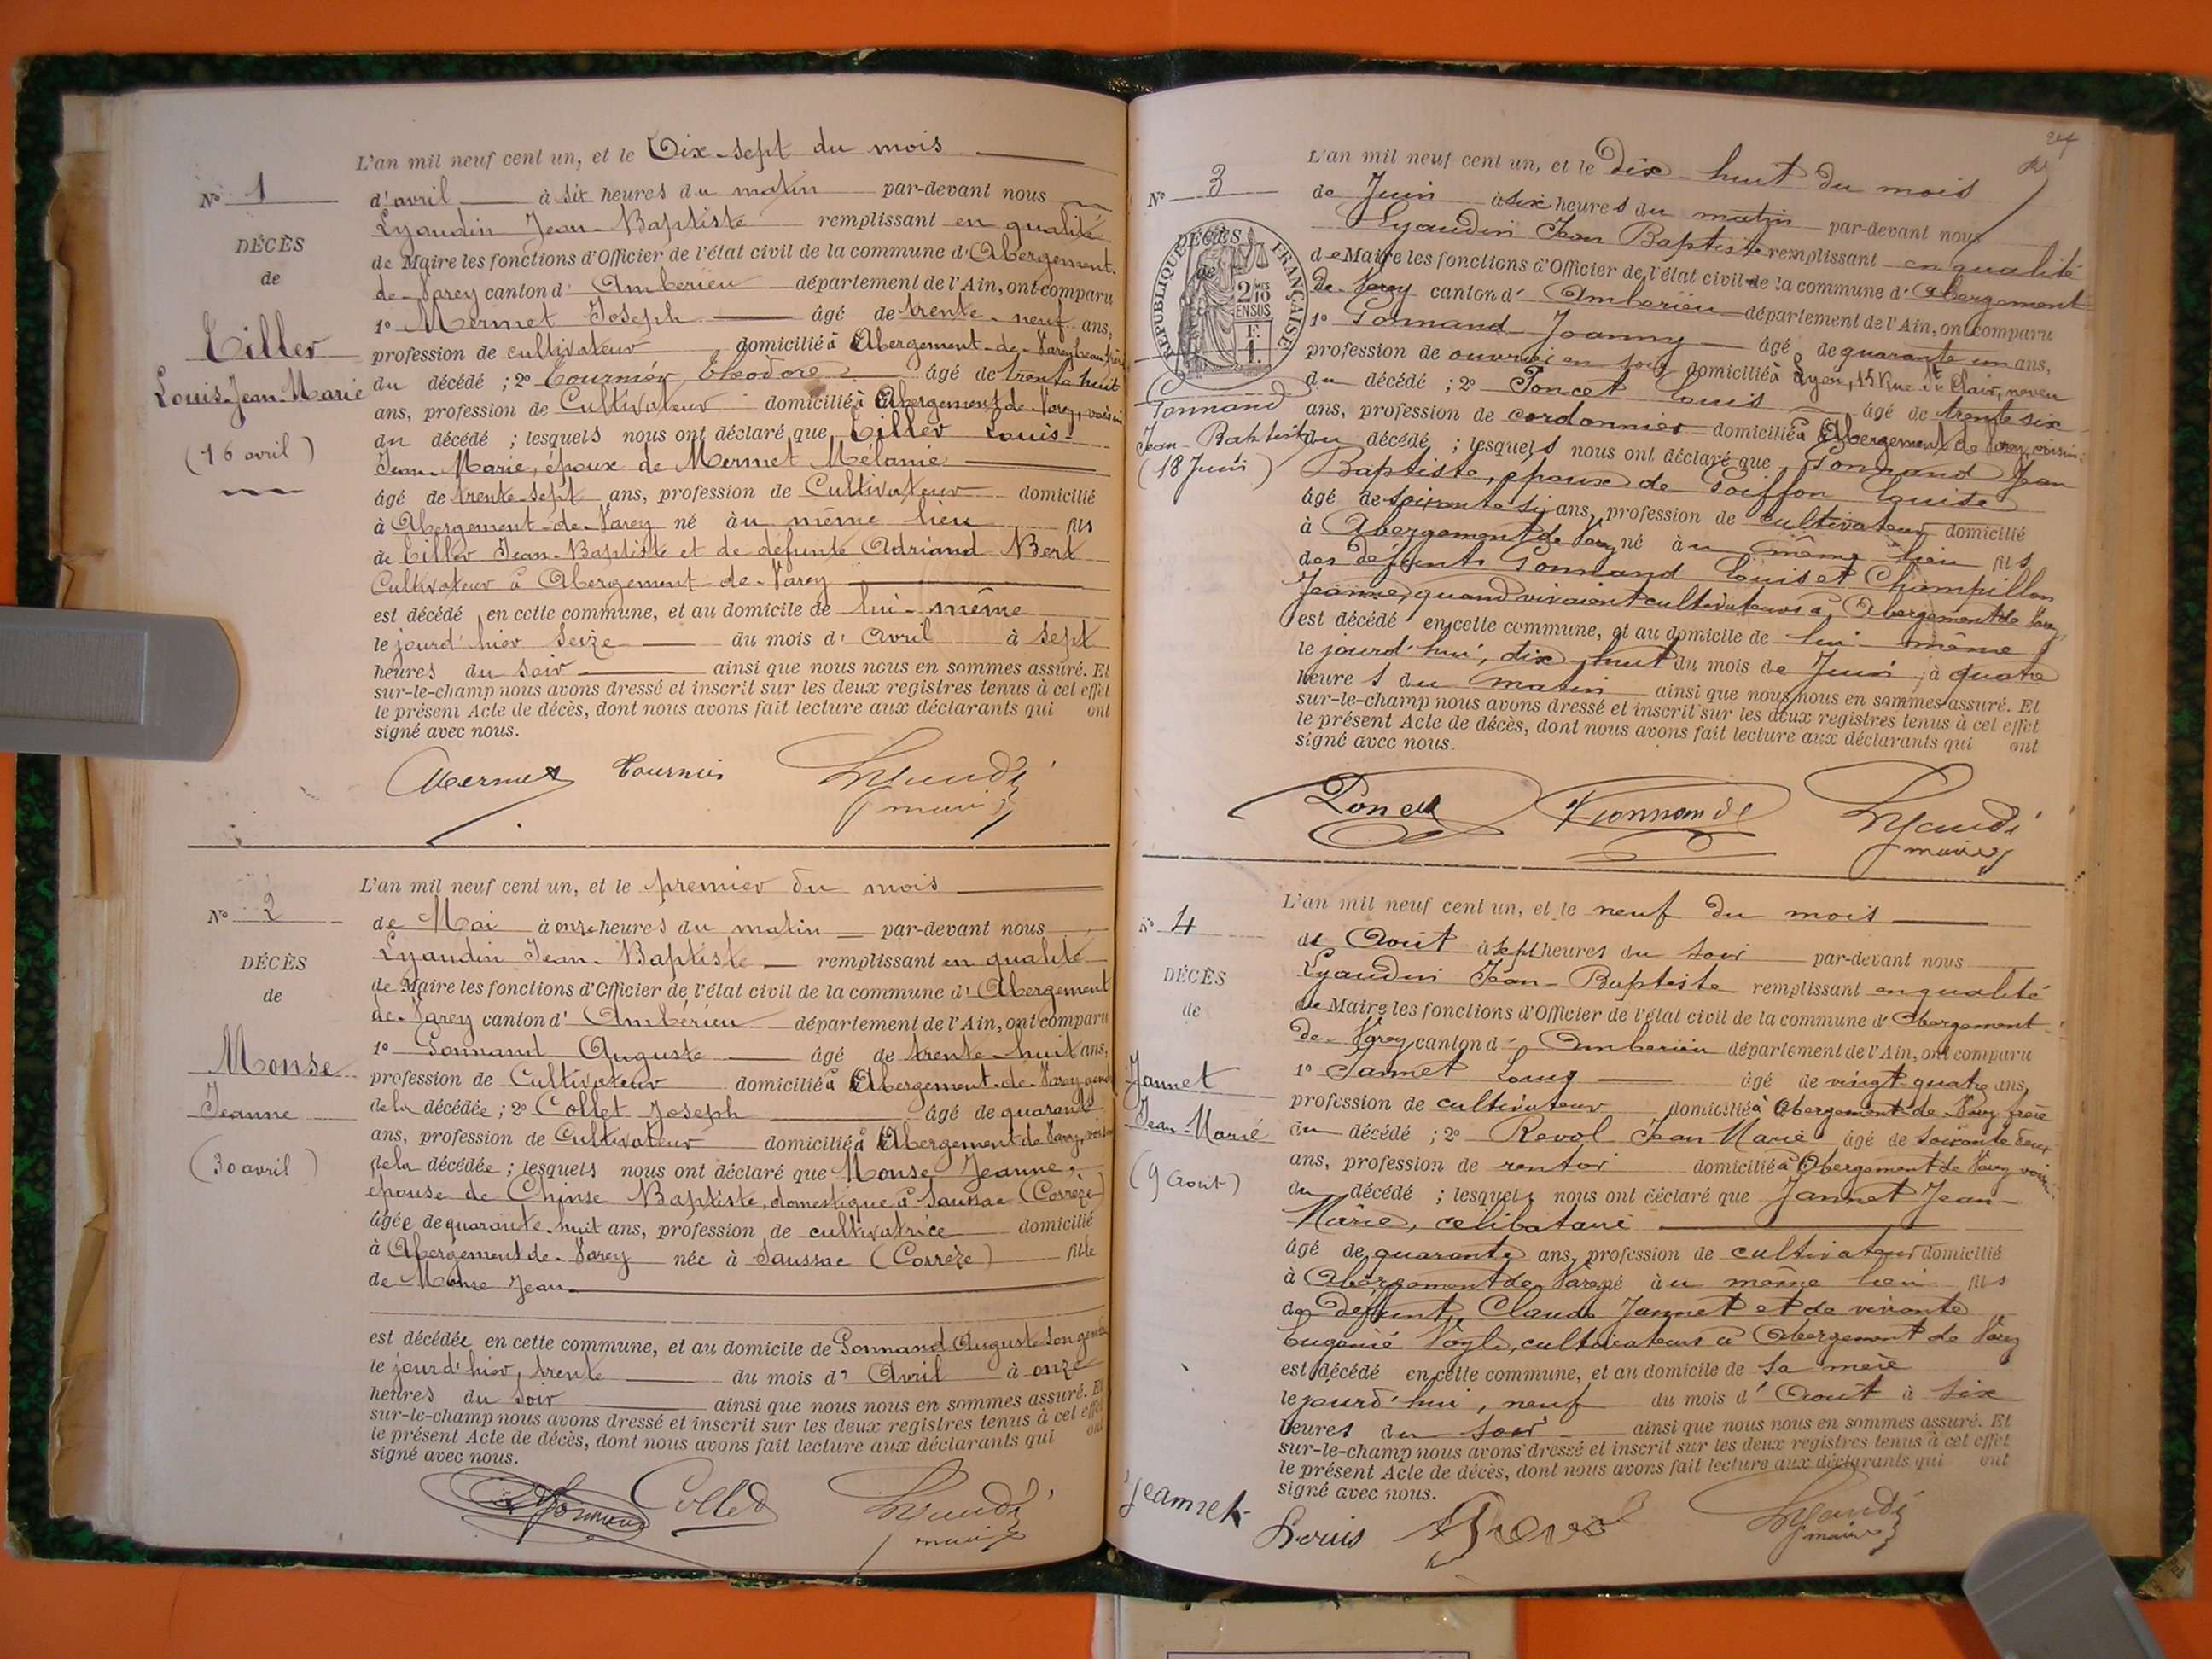 L'an mil neuf cent un, et le Dix-sept du mois
N° 1
d'avril à six heures du matin par-devant nous
Lyaudin Jean-Baptiste remplissant en qualité
DÉCÈS
de Maire les fonctions d'Officier de l'état civil de la commune d'Abergement-
de
de-Varey canton d'Ambérieu département de l'Ain, ont comparu
1° Mermet Joseph âgé de trente-neuf ans,
Tiller
profession de cultivateur domicilié à Abergement-de-Varey beau frère
Louis-Jean-Marie
du décédé ; 2° Tournier Théodore âgé de trente huit
ans, profession de Cultivateur domicilié à Abergement de Varey, voisin
(16 avril)
du décédé ; lesquels nous ont déclaré que Tiller Louis-
Jean-Marie, époux de Mermet Mélanie
âgé de trente-sept ans, profession de Cultivateur domicilié
à Abergement-de-Varey né au même lieu fils
de Tiller Jean-Baptiste et de défunte Adriand Bert
Cultivateur à Abergement-de-Varey
est décédé en cette commune, et au domicile de lui-même
le jourd'hier seize du mois d'Avril à sept
heures du soir ainsi que nous nous en sommes assuré. Et
sur-le-champ nous avons dressé et inscrit sur les deux registres tenus à cet effet
le présent Acte de décès, dont nous avons fait lecture aux déclarants qui ont
signé avec nous.
Mermet Tournier Lyaudi
maire
L'an mil neuf cent un, et le premier du mois
N° 2
de Mai à onze heures du matin par-devant nous
Lyaudin Jean-Baptiste remplissant en qualité
DÉCÈS
de Maire les fonctions d'Officier de l'état civil de la commune d'Abergement
de
de-Varey canton d'Ambérieu département de l'Ain, ont comparu
1° Gonnand Auguste âgé de trente-huit ans,
Monse
profession de Cultivateur domicilié à Abergement-de-Varey gendre
Jeanne
de la décédée ; 2° Collet Joseph âgé de quarante
ans, profession de Cultivateur domicilié à Abergement de Varey, voisin
(30 avril)
de la décédée ; lesquels nous ont déclaré que Monse Jeanne,
épouse de Chinse Baptiste, domestique à Saussac (Corrèze)
âgée de quarante-huit ans, profession de cultivatrice domicilié
à Abergement de-Varey née à Saussac (Corrèze) fille
de Monse Jean
est décédée en cette commune, et au domicile de Gonnand Auguste son gendre
le jourd'hier, trente du mois d'Avril à onze
heures du soir ainsi que nous nous en sommes assuré. Et
sur-le-champ nous avons dressé et inscrit sur les deux registres tenus à cet effet
le présent Acte de décès, dont nous avons fait lecture aux déclarants qui ont
signé avec nous.
Collet Lyaudi
maire
L'an mil neuf cent un, et le Dix-huit du mois
N° 3
de Juin à six heures du matin par-devant nous
Lyaudin Jean Baptiste remplissant en qualité
DÉCÈS
de
RÉPUBLIQUE FRANÇAISE
2 MES 10 EN SUS
F. 1.
de Maire les fonctions d'Officier de l'état civil de la commune d'Abergement
de-Varey canton d'Amberieu département de l'Ain, ont comparu
1° Gonnand Joanny âgé de quarante un ans,
profession de ouvrier en soie domicilié à Lyon, 15 Rue St Clair, neveu
du décédé ; 2° Poncet Louis âgé de trente six
Gonnand
ans, profession de cordonnier domicilié à Abergement de Varey, voisin
Jean-Baptiste
du décédé ; lesquels nous ont déclaré que Gonnand Jean
(18 Juin)
Baptiste, époux de Goiffon Louise
âgé de soixante six ans, profession de cultivateur domicilié
à Abergement de Varey né au même lieu fils
des défunts Gonnand Louis et Champillon
Jeanne, quand vivaient cultivateurs à Abergement de Varey
est décédé en cette commune, et au domicile de lui-même
le jourd'hui, dix-huit du mois de Juin à quatre
heures du matin ainsi que nous nous en sommes assuré. Et
sur-le-champ nous avons dressé et inscrit sur les deux registres tenus à cet effet
le présent Acte de décès, dont nous avons fait lecture aux déclarants qui ont
signé avec nous.
Poncet Gonnand Lyaudi
maire
L'an mil neuf cent un, et le neuf du mois
N° 4
de Août à sept heures du soir par-devant nous
Lyaudin Jean-Baptiste remplissant en qualité
DÉCÈS
de Maire les fonctions d'Officier de l'état civil de la commune d'Abergement-
de
de-Varey canton d'Amberieu département de l'Ain, ont comparu
1° Jannet Louis âgé de vingt quatre ans,
Jannet
profession de cultivateur domicilié à Abergement-de-Varey frère
Jean-Marie
du décédé ; 2° Revol Jean Marie âgé de soixante deux
ans, profession de rentier domicilié à Abergement de Varey voisin
(9 Août)
du décédé ; lesquels nous ont déclaré que Jannet Jean-
Marie, célibataire
âgé de quarante ans, profession de cultivateur domicilié
à Abergement de Varey né au même lieu fils
de défunt Claude Jannet et de vivante
Eugénie Vogle, cultivateurs à Abergement de Varey
est décédé en cette commune, et au domicile de sa mère
le jourd'hui, neuf du mois d'Août à six
heures du soir ainsi que nous nous en sommes assuré. Et
sur-le-champ nous avons dressé et inscrit sur les deux registres tenus à cet effet
le présent Acte de décès, dont nous avons fait lecture aux déclarants qui ont
signé avec nous.
Jeannet Louis Revol Lyaudi
maire